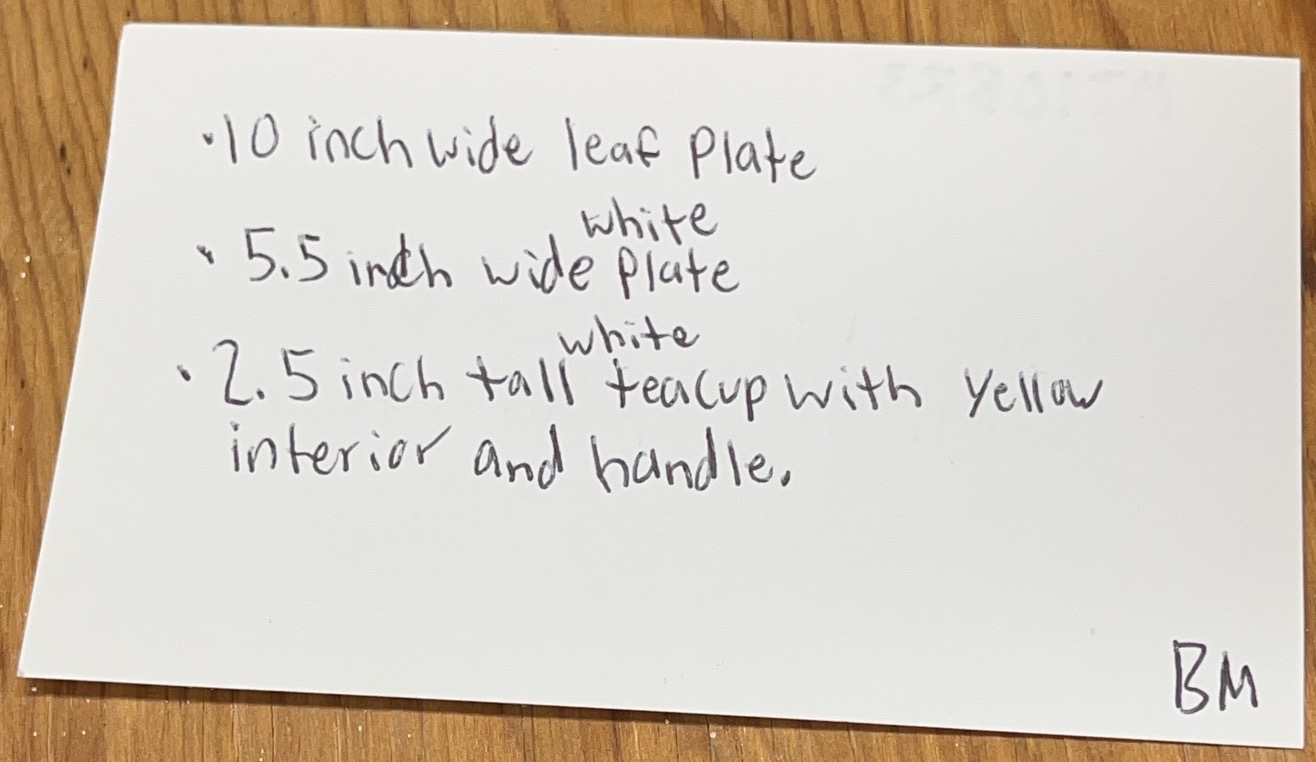 ·10 inch wide leaf plate
white
·5.5 inch wide plate
white
·2.5 inch tall teacup with yellow
interior and handle.
BM